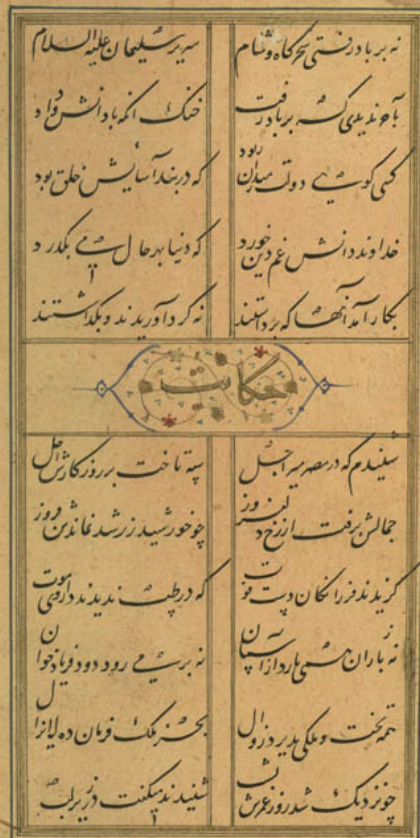 نه بر باد رفتی سحرگاه و شام سریر سلیمان علیه السلام
بآخر ندیدی که بر باد رفت خنک انکه با دانش و داد
کسی گوی دولت ز میدان ربود که در بند آسایش خلق بود
خداوند دانش غم دین خورد که دنیا بهر حال می بگذرد
بکار آمد آنها که برداشتند نه گرد آوریدند و بگذاشتند
حکایت
شنیدم که در مصر میر اجل سپه تاخت بر روزگارش اجل
جمالش برفت از رخ دلفروز چو خورشید زرد شد نماند روز
گزیدند فرزانگان دست فوت که در طب ندیدند داروی موت
نه باران همی بارد از آسمان نه بر می رود دود فریاد خوان
همه تخت و ملکی پذیرد زوال بجز ملک فرمان ده لایزال
چو نزدیک شد روز عمرش بشب شنیدند میگفت در زیر لب